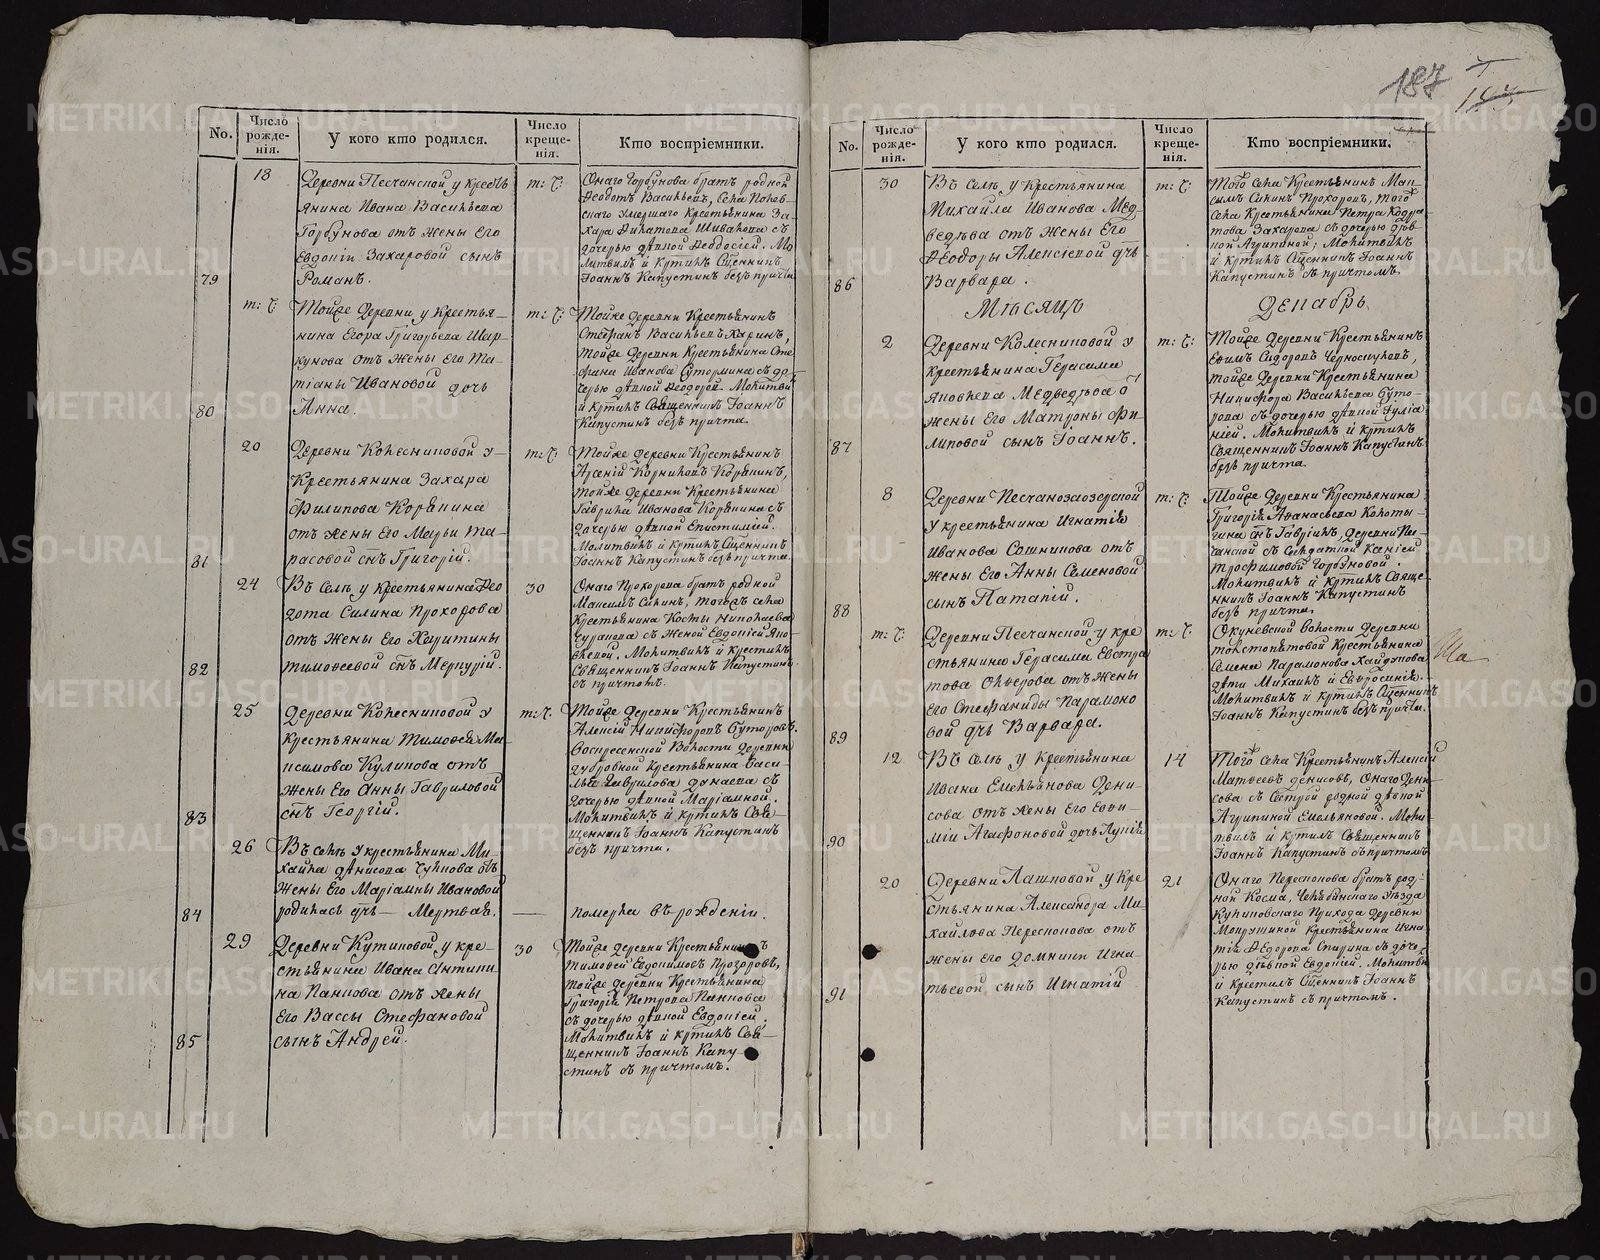 187
No.
Число рожде-нія.
У кого кто родился.
Число креще-нія.
Кто воспріемники.
18
Деревни Песчанской у кресть
янина Ивана Васильева
Горбунова отъ жены его
Евдокіи Захаровой сынъ
79
Романъ.
т: ч:
Онаго Горбунова братъ родной
Ѳеодотъ Васильевъ, села
умершаго крестьянина За-
хара съ
дочерью дѣвкой Ѳеодосіей. Мо
литвилъ и крстилъ Сщенникъ
Іоаннъ Капустинъ безъ причта
т: ч:
Тойже деревни у крестья-
нина Егора Григорьева Шир-
кунова отъ жены его Та-
тіаны Ивановой дочь
80
Анна.
т: ч:
Тойже деревни крестьянинъ
Стефанъ Васильевъ
тойже деревни крестьянина Сте
фана Иванова Сутормина съ до-
черью дѣвкой Ѳеодорой. Молитвил
и крстилъ Священникъ Іоаннъ
Капустинъ безъ причта.
20
Деревни Колесниковой у
крестьянина Захара
Филипова Корѣкина
отъ жены его Марьи Та-
81
расовой снъ Григорій.
т: ч:
Тойже деревни крестьянинъ
Арсеній Корниловъ Корѣкинъ,
тойже деревни крестьянина
Гаврила Иванова Корѣкина съ
дочерью дѣвкой Епистиміей.
Молитвилъ и крстилъ Сщенникъ
Іоаннъ Капустинъ безъ причта.
24
Въ селѣ у крестьянина Ѳео
дота Силина Прохорова
отъ жены его Харитины
82
Тимоѳеевой снъ Меркурій.
30
Онаго Прохорова братъ родной
Максимъ Силинъ, тогожъ села
крестьянина Косты Николаева
съ женой Евдокіей Яко-
влевой. Молитвилъ и крестилъ
Священникъ Іоаннъ Капустинъ
съ причтомъ.
25
Деревни Колесниковой у
крестьянина Тимоѳея Ма-
ксимова Куликова отъ
жены его Анны Гавриловой
83
снъ Георгій.
т: ч:
Тойже деревни крестьянинъ
Алексій Никифоровъ Суторовъ,
Воскресенской волости деревни
Дубровной крестьянина Васи-
лья Гаврилова Дунаева съ
дочерью дѣвкой Маріамной.
Молитвилъ и крстилъ Свя-
щенникъ Іоаннъ Капустинъ
безъ причта.
26
Въ селѣ у крестьянина Ми-
хаила Денисова отъ
жены его Маріамны Ивановой
84
родилась дчь — мертвая.
—
померла въ рожденіи.
29
Деревни Кутиковой у кре-
стьянина Ивана Антипи-
на Панкова отъ жены
его Вассы Стефановой
85
сынъ Андрей.
30
Тойже деревни крестьянинъ
Тимоѳей Евдокимовъ Прозоровъ,
тойже деревни крестьянина
Григорія Петрова Панкова
съ дочерью дѣвкой Евдокіей.
Молитвилъ и крстилъ Свя-
щенникъ Іоаннъ Капу-
стинъ съ причтомъ.
No.
Число рожде-нія.
У кого кто родился.
Число креще-нія.
Кто воспріемники.
30
Въ селѣ у крестьянина
Михайла Иванова Мед-
ведѣва отъ жены его
Ѳеодоры Алексіевой дчь
86
Варвара.
т: ч:
Того села крестьянинъ Мак-
симъ Силинъ Прохоровъ, того
села крестьянина Петра Кодра-
това Захарова съ дочерью дѣв-
кой Агрипиной; Молитвилъ
и крстилъ Сщенникъ Іоаннъ
Капустинъ съ причтомъ.
Мѣсяцъ
Декабрь.
2
Деревни Колесниковой у
крестьянина Герасима
Яковлева Медведѣва ѿ
жены его Матроны Фи-
87
липовой сынъ Іоаннъ.
т: ч:
Тойже деревни крестьянинъ
Ефимъ Сидоровъ Черноскуловъ,
тойже деревни крестьянина
Никифора Васильева Суто-
рова съ дочерью дѣвкой Іулiа-
ніей. Молитвилъ и крстилъ
Священникъ Іоаннъ Капустинъ
безъ причта.
8
Деревни Песчанозаозерской
у крестьянина Игнатія
Иванова Сошникова отъ
жены его Анны Семеновой
88
сынъ Патапій.
т: ч:
Тойже деревни крестьянина
Григорія Аѳанасьева Колоты-
гина снъ Гавріилъ, деревни Пе-
чанской съ солдаткой Каніей
Трофимовой Горбуновой.
Молитвилъ и крстилъ Свяще-
нникъ Іоаннъ Капустинъ
безъ причта.
т: ч:
Деревни Песчанской у кре
стьянина Герасима Евстра
това отъ жены
его Стефаниды Парамоно
89
вой дчь Варвара.
т: ч:
Окуневской волости деревни
крестьянина
Семена Парамонова Кайдунова
дѣти Михаилъ и Евфросинія.
Молитвилъ и крстилъ Сщенникъ
Іоаннъ Капустинъ безъ причта.
12
Въ селѣ у крестьянина
Ивана Емельянова Дени-
сова отъ жены его Евфи-
90
міи Агафоновой дочь Лукія
14
Того села крестьянинъ Алексій
Матвеевъ Денисовъ, онаго Дени-
сова съ сестрой родной дѣвкой
Агрипиной Емельяновой. Моли-
твилъ и крстилъ Священникъ
Іоаннъ Капустинъ съ причтомъ
20
Деревни Пашковой у кре
стьянина Александра Ми-
хайлова Переспокова отъ
жены его Домники Игна-
91
тьевой сынъ Игнатій
21
Онаго Переспокова братъ род-
ной Косма, Челябинскаго уѣзда
прихода деревни
крестьянина Игна-
тія Ѳедорова Спирина съ доче-
рью дѣвкой Евдокіей. Молитви
и крестилъ Сщенникъ Іоаннъ
Капустинъ съ причтомъ.
METRIKI.GASO-URAL.RU